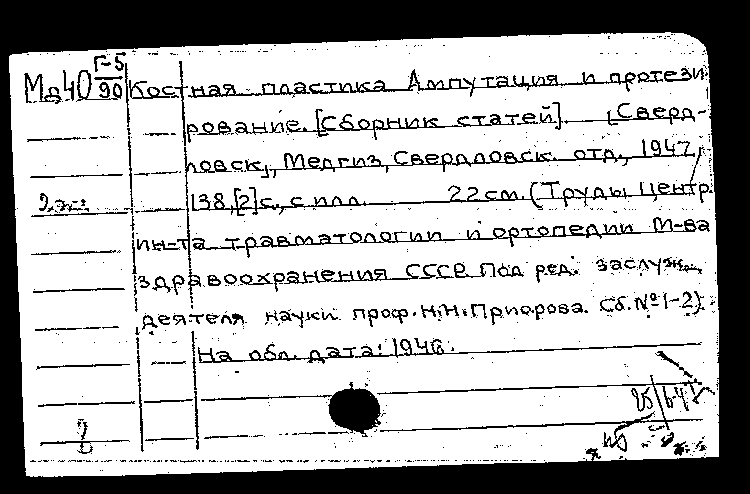 Мд40 Г-5/90 Костная пластика Ампутация и протези-
рование. [Сборник статей]. [Сверд-
ловск], Медгиз, Свердловск. отд., 1947,
2 экз 138,[2]с., с илл. 22 см. (Труды Центр.
ин-та травматологии и ортопедии М-ва
здравоохранения СССР. Под ред. заслуж.
деятеля науки проф. Н.Н. Приорова. Сб. №1-2).
На обл. дата: 1946.